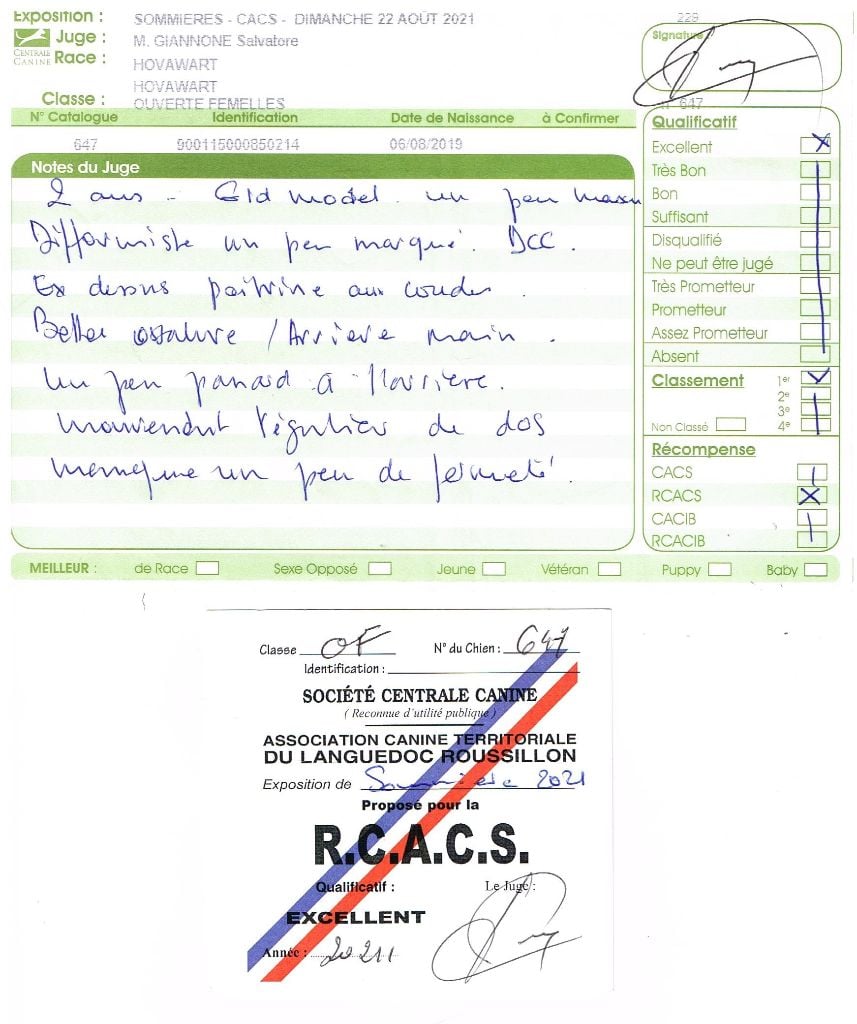 Exposition : SOMMIERES - CACS - DIMANCHE 22 AOÛT 2021 229
Juge : M. GIANNONE Salvatore Signature
CENTRALE CANINE Race : HOVAWART
HOVAWART
Classe : OUVERTE FEMELLES N° 647
N° Catalogue Identification Date de Naissance à Confirmer
647 900115000850214 06/08/2019
Notes du Juge
2 ans - Gld model. un peu
un peu marqué. DCC.
Ex dessus poitrine aux coudes.
Belle ossature / Arrière main.
Un peu panard à l'arrière.
régulier de dos
un peu de fermeté.
Qualificatif
Excellent
Très Bon
Bon
Suffisant
Disqualifié
Ne peut être jugé
Très Prometteur
Prometteur
Assez Prometteur
Absent
Classement 1er
2e
3e
Non Classé 4e
Récompense
CACS
RCACS
CACIB
RCACIB
MEILLEUR : de Race Sexe Opposé Jeune Vétéran Puppy Baby
Classe OF N° du Chien : 647
Identification :
SOCIÉTÉ CENTRALE CANINE
( Reconnue d'utilité publique )
ASSOCIATION CANINE TERRITORIALE
DU LANGUEDOC ROUSSILLON
Exposition de Sommière 2021
Proposé pour la
R.C.A.C.S.
Qualificatif : Le Juge :
EXCELLENT
Année : 2021